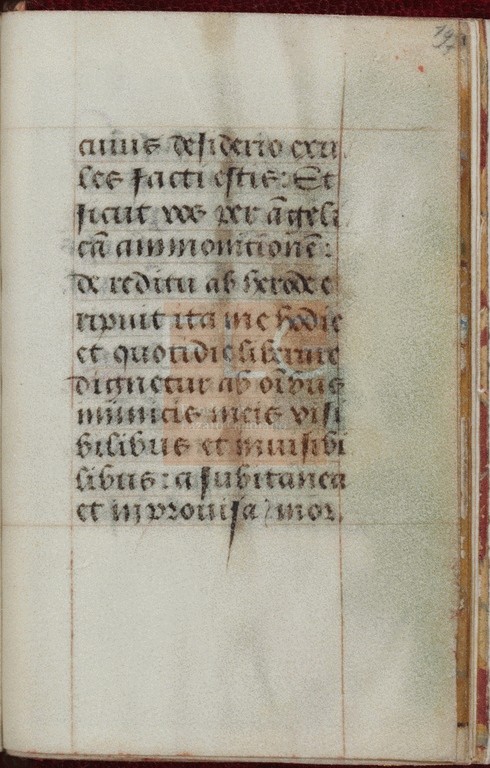 cuius desiderio exu
les facti estis: Et
sicut vos per āgeli
cā ammonitionē:
de reditu ab herode e
ripuit ita me hodie
et quotidie liberare
dignetur ab oībus
inimicis meis visi
bilibus et invisibi
libus: a subitanea
et improuisa mor